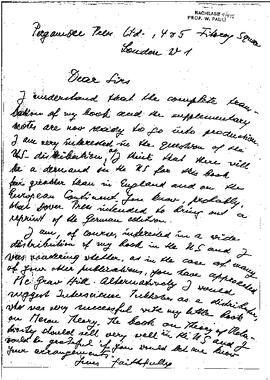 NACHLASS
PROF. W. PAULI
Pergamon Press Ltd., 4 & 5 Fitzroy Square
London W 1
Dear Sirs
I understand that the complete trans-
lation of my book and the supplementary
notes are now ready to go into production.
I am very interested in the question of the
US distribution, I think that there will
be a demand in the US for this book
far greater than in England and on the
European Continent. You know, probably,
that Dover Press intended to bring out a
reprint of the German edition.
I am, of course, interested in a wide
distribution of my book in the US and I
was wondering whether, as in the case of many
of your other publications, you have approached
Mc Graw Hill. Alternatively I would
suggest Interscience Publishers as a distributor,
who was very successful with my little book
on Meson Theory. The book on Theory of Rela-
tivity should sell very well in the US and I
would be grateful if you would let me know
your arrangements.
Yours faithfully